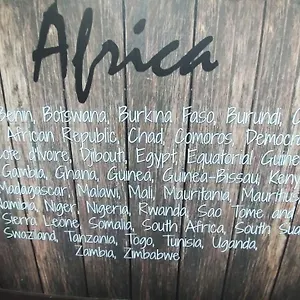 Africa
Benin, Botswana, Burkina Faso, Burundi, C
African Republic, Chad, Comoros, Democra
ote d'Ivoire, Djibouti, Egypt, Equatorial Guine
Gambia, Ghana, Guinea, Guinea-Bissau, Keny
Madagascar, Malawi, Mali, Mauritania, Mauritius
amibia, Niger, Nigeria, Rwanda, Sao Tome and
Sierra Leone, Somalia, South Africa, South Sud
Swaziland, Tanzania, Togo, Tunisia, Uganda,
Zambia, Zimbabwe